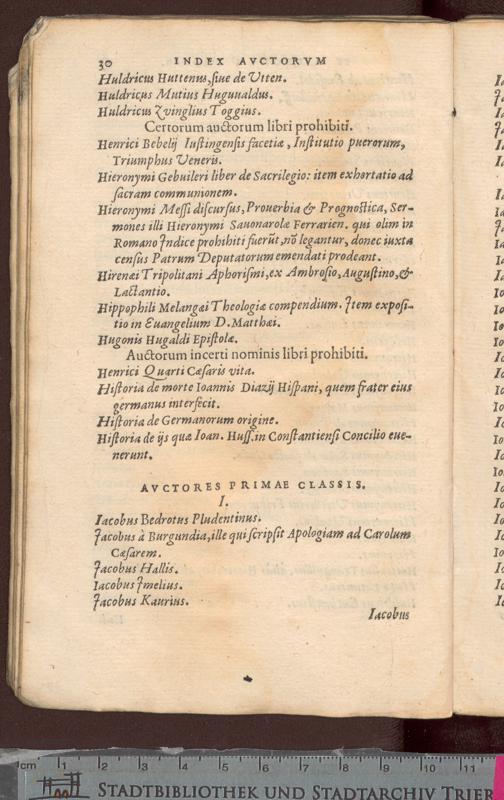 30 INDEX AVCTORVM
Huldricus Huttenus, siue de Vtten.
Huldricus Mutius Hugunaldus.
Huldricus Zvinglius Toggius.
Certorum auctorum libri prohibiti.
Henrici Bebelij Iustingensis facetiæ, Institutio puerorum,
Triumphus Veneris.
Hieronymi Gebuileri liber de Sacrilegio: item exhortatio ad
sacram communionem.
Hieronymi Messi discursus, Prouerbia & Prognostica, Ser-
mones illi Hieronymi Sauonarolæ Ferrarien. qui olim in
Romano Indice prohibiti fuerūt, nō legantur, donec iuxta
censuſ Patrum Deputatorum emendati prodeant.
Hirenæi Tripolitani Aphorismi, ex Ambrosio, Augustino, &
Lactantio.
Hippophili Melangæi Theologiæ compendium. Item exposi-
tio in Euangelium D. Matthæi.
Hugonis Hugaldi Epistolæ.
Auctorum incerti nominis libri prohibiti.
Henrici Quarti Cæsaris vita.
Historia de morte Ioannis Diazij Hispani, quem frater eius
germanus interfecit.
Historia de Germanorum origine.
Historia de ijs quæ Ioan. Huss. in Constantiensi Concilio eue-
nerunt.
AVCTORES PRIMAE CLASSIS.
I.
Iacobus Bedrotus Pludentinus.
Iacobus à Burgundia, ille qui scripsit Apologiam ad Carolum
Cæsarem.
Iacobus Hallis.
Iacobus Imelius.
Iacobus Kaurius.
Iacobus
cm 1 2 3 4 5 6 7 8 9 10 11
STADTBIBLIOTHEK UND STADTARCHIV TRIER